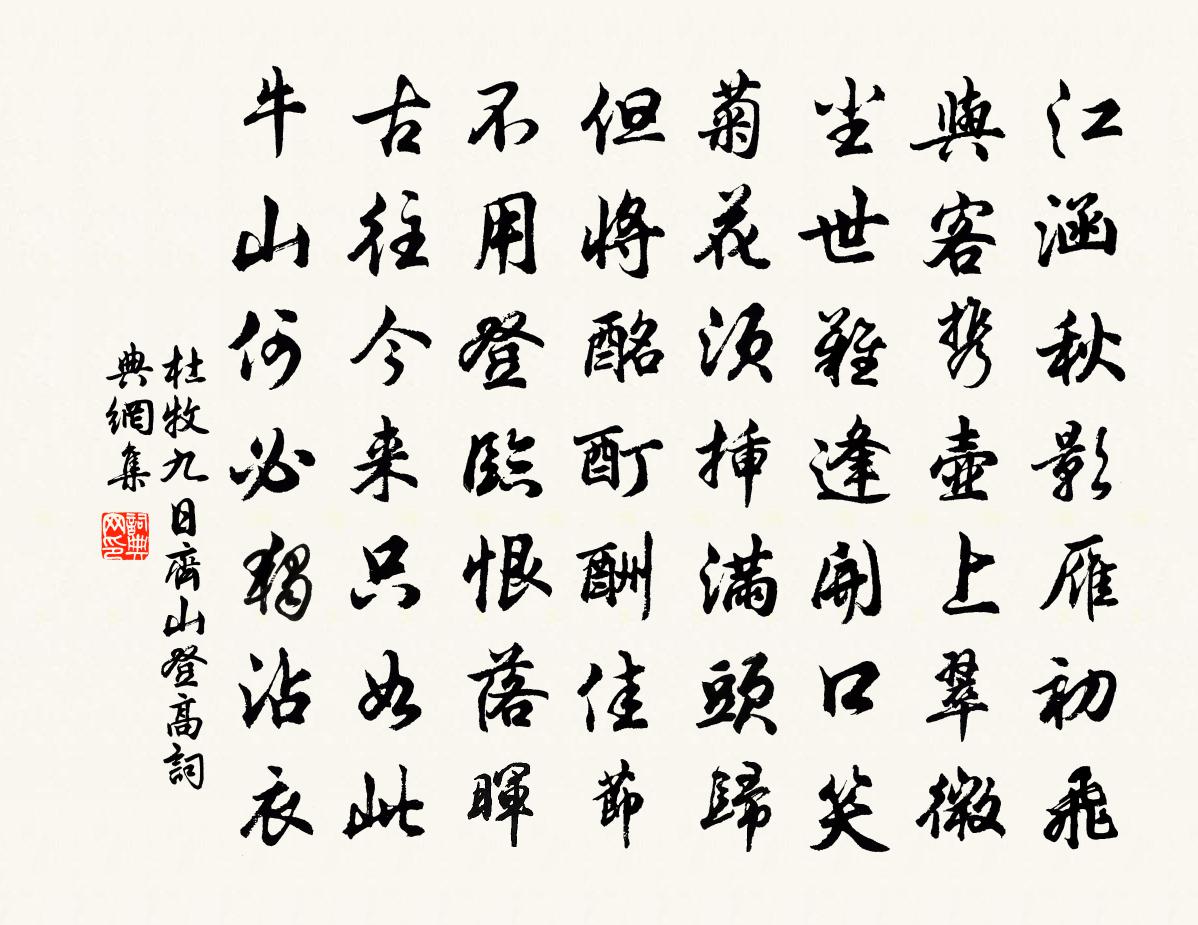 江涵秋影雁初飛
與客携壺上翠微
尘世難逢開口笑
菊花須插滿頭歸
但將酩酊酬佳節
不用登臨恨落暉
古往今来只如此
牛山何必獨沾衣
杜牧九日齊山登高詞
典網集
詞典
网印